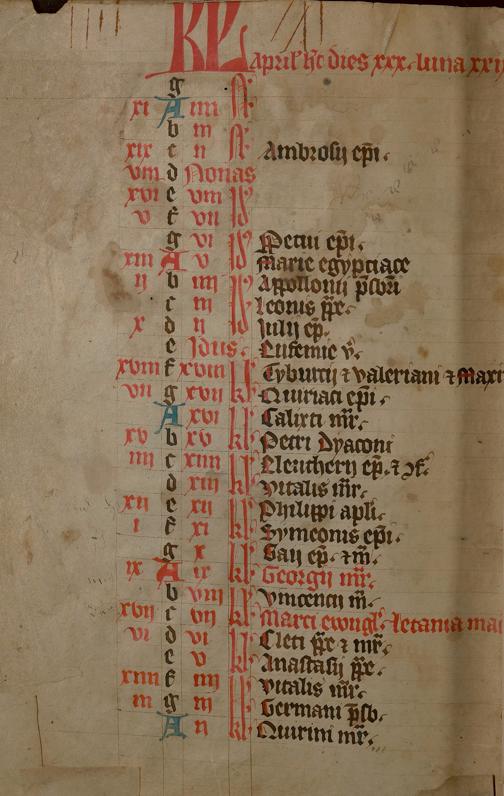 KL Aprilˈ hꝫ dies xxx. luna xxi
g N
xi A iiii N
b iii N
xix c ii N Ambrosij epi.
viii d Nonas
xvi e viii Id
v f vii Id
g vi Id Petri epi.
xiii A v Id Marie egyptiace
ii b iiii Id Appollonii pcori
c iii Id leonis ppe.
x d ii Id Julij ep.
e Idus. Eufemie v.
xviii f xviii kl Tyburtij ⁊ valeriani ⁊ maxi
vii g xvii kl Quiriaci epi.
A xvi kl Calixti mr.
xv b xv kl Petri Dyaconi
iiii c xiiii kl Eleutherij ep. ⁊
d xiii kl vitalis mr.
xii e xii kl Philippi apli.
i f xi kl Symeonis epi.
g x kl Gaij ep. ⁊ m.
ix A ix kl Georgii mr.
b viii kl vincencij m.
xvii c vii kl Marci ewãgl. letania mai
vi d vi kl Cleti ppe ⁊ mr.
e v kl Anastasij ppe.
xiiii f iiii kl vitalis mr.
iii g iii kl Germani psb.
A ii kl Quirini mr.